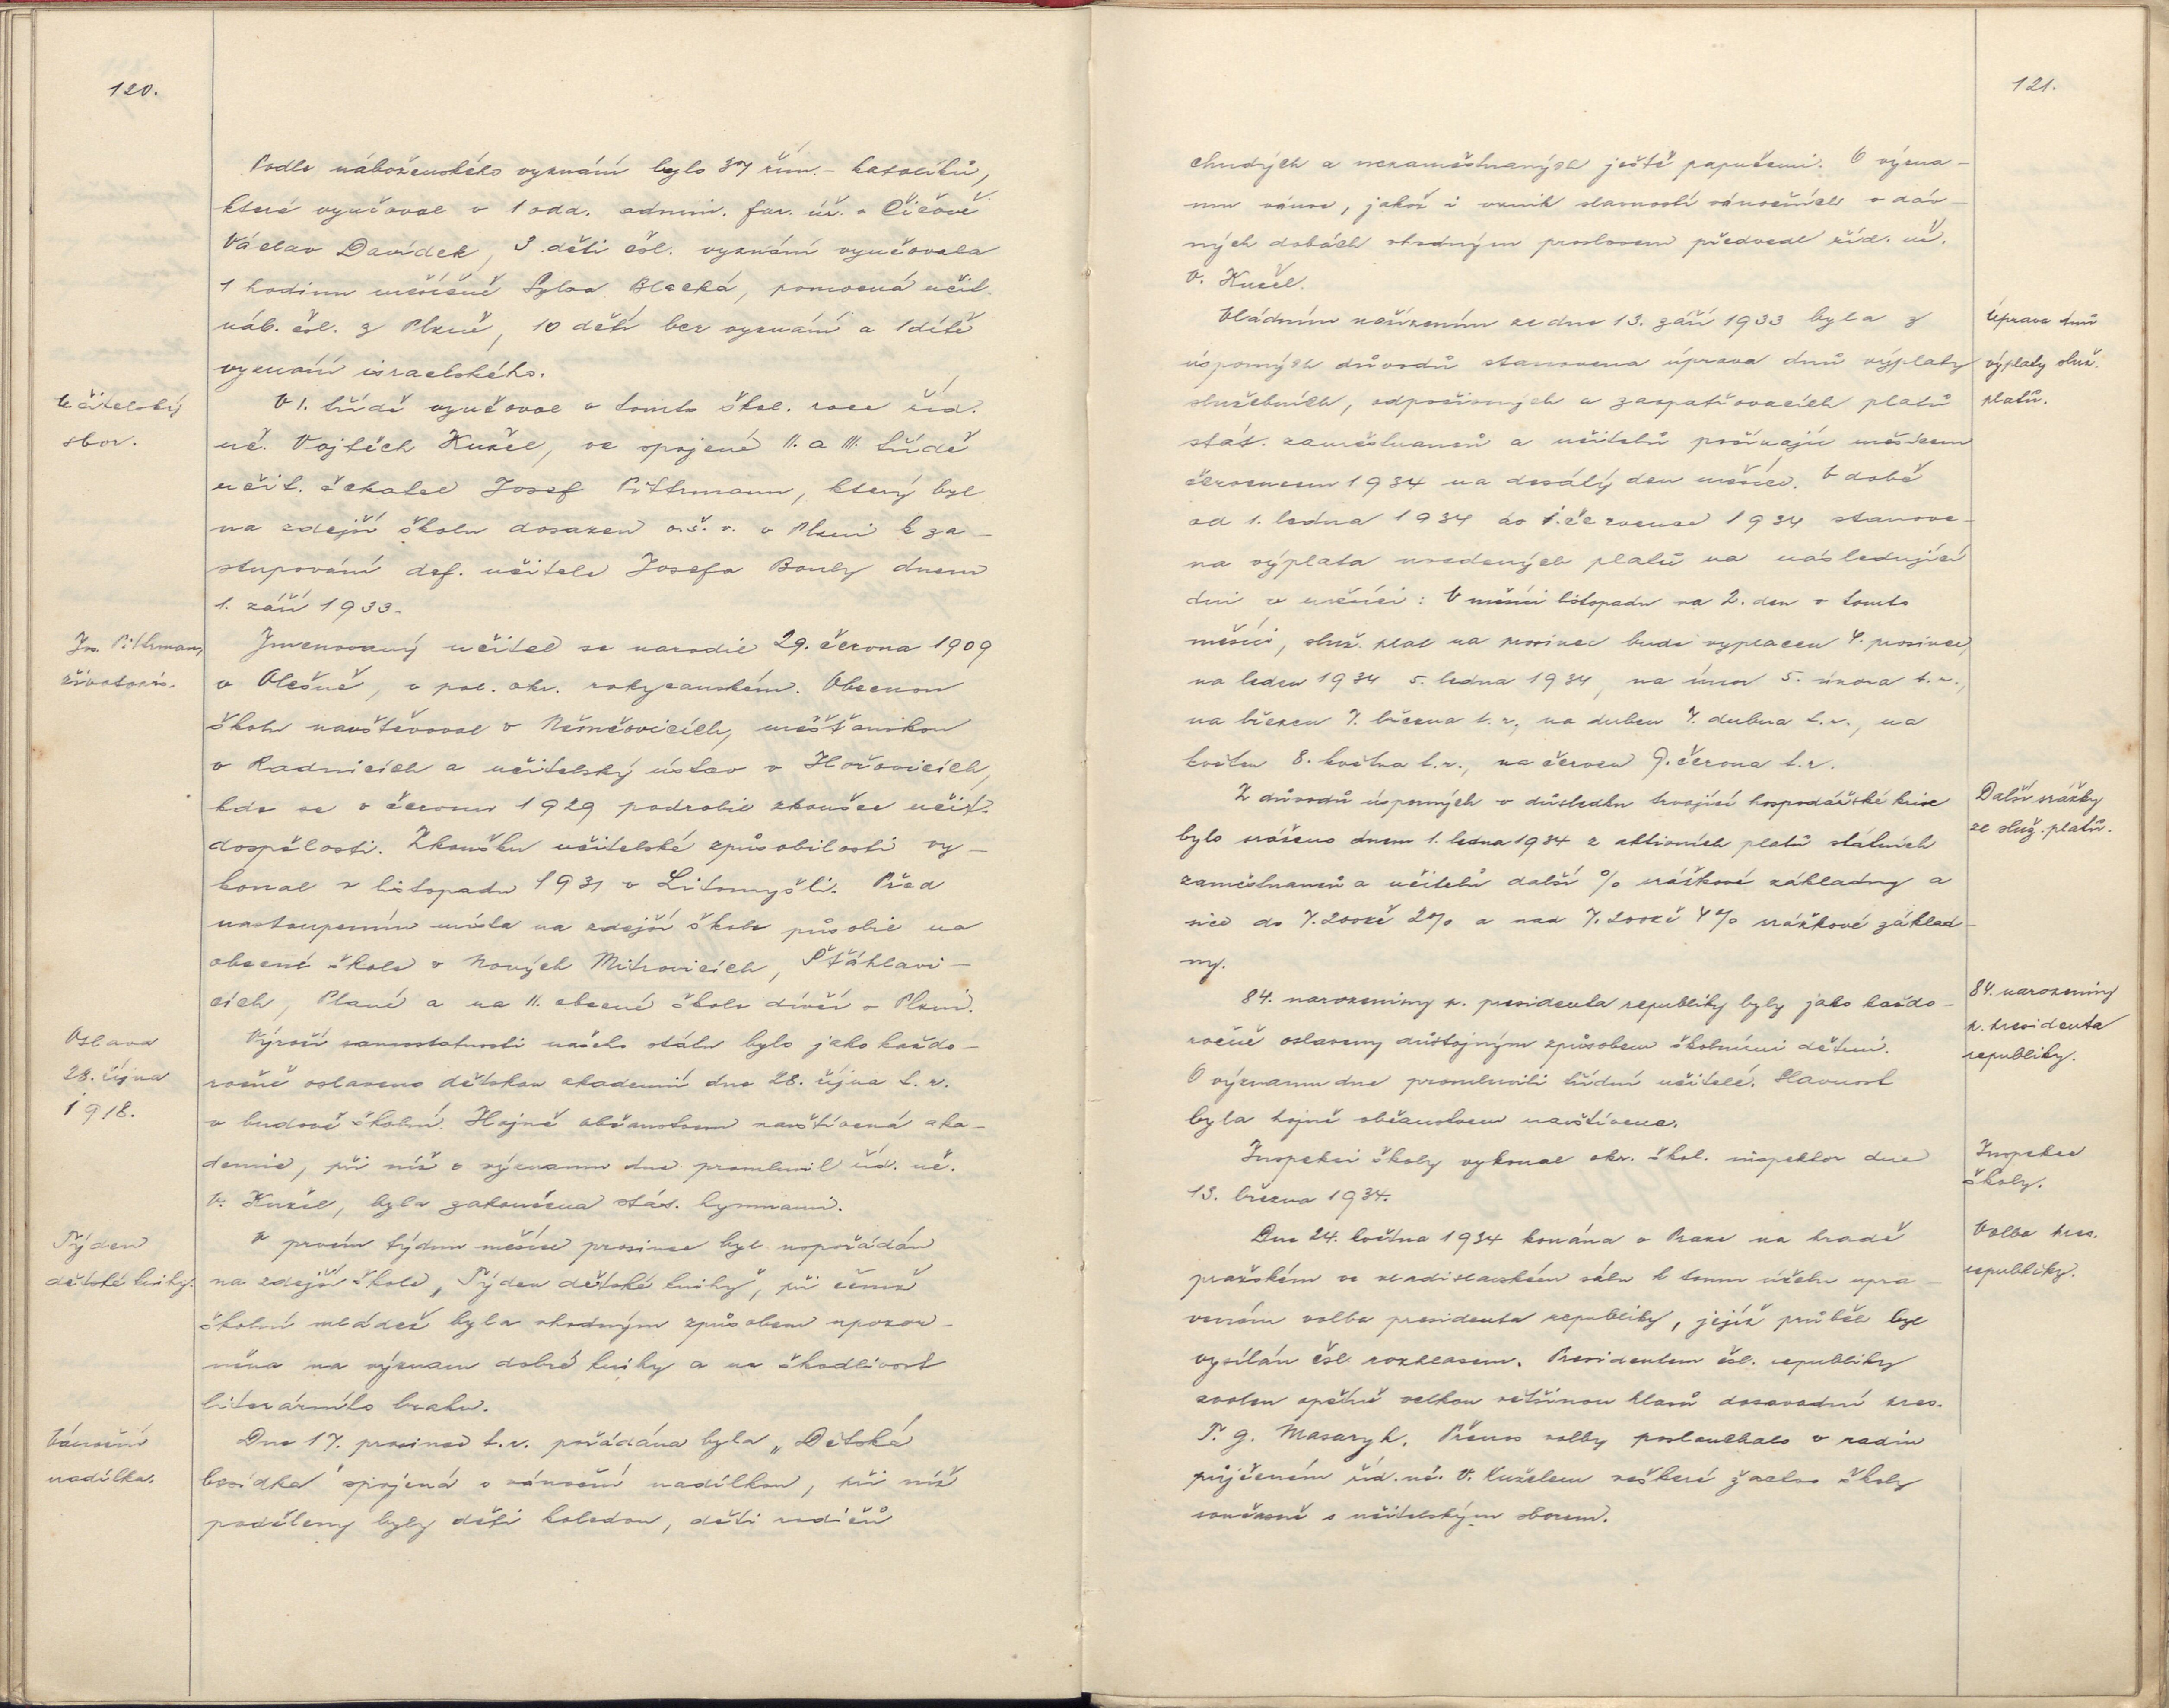 120.
Podle náboženského vyznání bylo 37 řím.- katolíků,
které vyučoval v 1 odd. admin. far. úř. v Čičově
Václav Davídek, 3 děti čsl. vyznání vyučovala
1 hodinu měsíčně Sylva Blecká, pomocná učit.
náb. čsl. z Plzně, 10 dětí bez vyznání a 1 dítě
vyznání israelského.
Učitelský
sbor.
V I. třídě vyučoval v tomto škol. roce říd.
uč. Vojtěch Kužel, ve spojené II. a III. třídě
učit. čekatel Josef Pittrmann, který byl
na zdejší školu dosazen o.š.v. v Plzni k za-
stupování def. učitele Josefa Bouly dnem
1. září 1933.
Jos. Pittrmann,
životopis.
Jmenovaný učitel se narodil 29. června 1909
v Olešné, v pol. okr. rokycanském. Obecnou
školu navštěvoval v Němčovicích, měšťanskou
v Radnicích a učitelský ústav v Hořovicích,
kde se v červnu 1929 podrobil zkoušce učit.
dospělosti. Zkoušku učitelské způsobilosti vy-
konal v listopadu 1931 v Litomyšli. Před
nastoupením místa na zdejší škole působil na
obecné škole v Nových Mitrovicích, Šťáhlavi-
cích, Plané a na II. obecné škole dívčí v Plzni.
Oslava
28. října
1918.
Výročí samostatnosti našeho státu bylo jako každo-
ročně oslaveno dětskou akademií dne 28. října t. r.
v budově školní. Hojně občanstvem navštívená aka-
demie, při níž o významu dne promluvil říd. uč.
V. Kužel, byla zakončena stát. hymnami.
Týden
dětské knihy.
V prvém týdnu měsíce prosince byl uspořádán
na zdejší škole „Týden dětské knihy", při čemž
školní mládež byla vhodným způsobem upozor-
něna na význam dobré knihy a na škodlivost
literárního braku.
Vánoční
nadílka.
Dne 17. prosince t. r. pořádána byla „Dětská
besídka" spojená s vánoční nadílkou, při níž
poděleny byly děti koledou, děti rodičů
121.
chudých a nezaměstnaných ještě papučemi. O význa-
mu vánoc, jakož i vznik slavností vánočních v dáv-
ných dobách vhodným proslovem předvedl říd. uč.
V. Kužel.
Úprava dnů
výplaty služ.
platů.
Vládním nařízením ze dne 13. září 1933 byla z
úsporných důvodů stanovena úprava dnů výplaty
služebních, odpočivných a zaopatřovacích platů
stát. zaměstnanců a učitelů počínajíc měsícem
červencem 1934 na desátý den měsíce. V době
od 1. ledna 1934 do 1. července 1934 stanove-
na výplata uvedených platů na následující
dni v měsíci: V měsíci listopadu na 2. den v tomto
měsíci, služ. plat na prosinec bude vyplacen 4. prosince,
na leden 1934 5. ledna 1934, na únor 5. února t. r.,
na březen 7. března t. r., na duben 7. dubna t. r., na
květen 8. května t. r., na červen 9. června t. r.
Další srážky
ze služ. platů.
Z důvodů úsporných v důsledku trvající hospodářské krise
bylo sráženo dnem 1. ledna 1934 z aktivních platů státních
zaměstnanců a učitelů další % srážkové základny a
sice do 7.200 Kč 2% a nad 7.200 Kč 4% srážkové základ-
ny.
84. narozeniny
p. presidenta
republiky.
84. narozeniny p. presidenta republiky byly jako každo-
ročně oslaveny důstojným způsobem školními dětmi.
O významu dne promluvili třídní učitelé. Slavnost
byla hojně občanstvem navštívena.
Inspekce
školy.
Inspekci školy vykonal okr. škol. inspektor dne
13. března 1934.
Volba pres.
republiky.
Dne 24. května 1934 konána v Praze na hradě
pražském ve vladislavském sálu k tomu účelu upra-
veném volba presidenta republiky, jejíž průběh byl
vysílán čsl. rozhlasem. Presidentem čsl. republiky
zvolen opětně velkou většinou hlasů dosavadní pres.
T. G. Masaryk. Přenos volby poslouchalo v radiu
půjčeném říd. uč. V. Kuželem veškeré žactvo školy
současně s učitelským sborem.